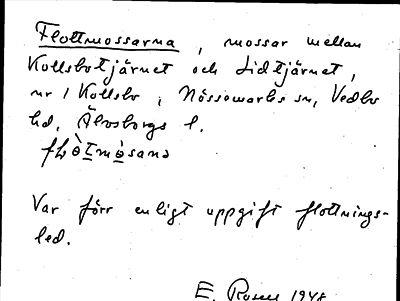 Flottmossarna, mossar mellan
Kollsbotjärnet och Lidtjärnet,
nr 1 Kollsbo, Nössemarks sn, Vedbo
hd, Älvsborgs l.
Var förr enligt uppgift flottnings-
led.
E. 1948